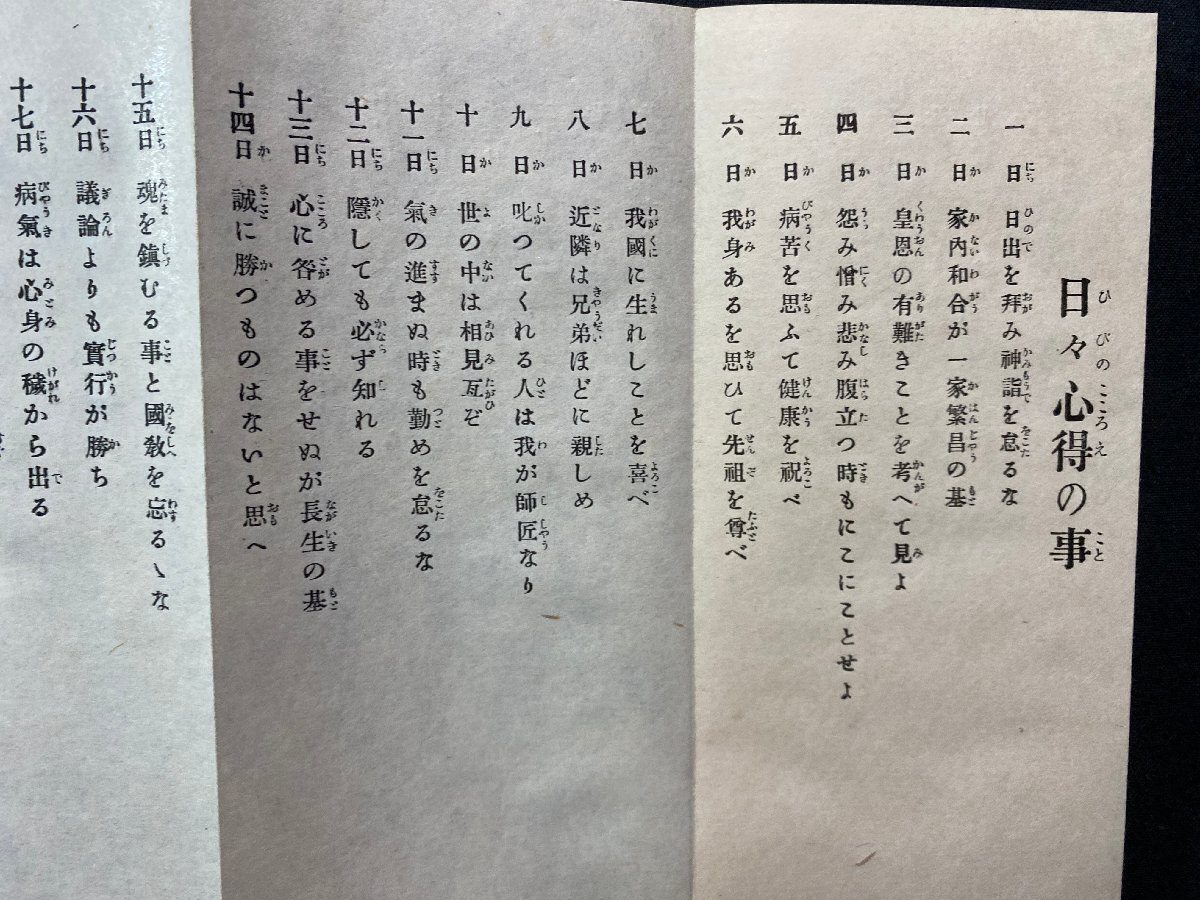 日々心得の事
一日 日出を拜み神詣を怠るな
二日 家内和合が一家繁昌の基
三日 皇恩の有難きことを考へて見よ
四日 怨み憎み悲み腹立つ時もにこにことせよ
五日 病苦を思ふて健康を祝べ
六日 我身あるを思ひて先祖を尊べ
七日 我國に生れしことを喜べ
八日 近隣は兄弟ほどに親しめ
九日 叱つてくれる人は我が師匠なり
十日 世の中は相見互ぞ
十一日 氣の進まぬ時も勤めを怠るな
十二日 隱しても必ず知れる
十三日 心に咎める事をせぬが長生の基
十四日 誠に勝つものはないと思へ
十五日 魂を鎭むる事と國敎を忘るヽな
十六日 議論よりも實行が勝ち
十七日 病氣は心身の穢から出る